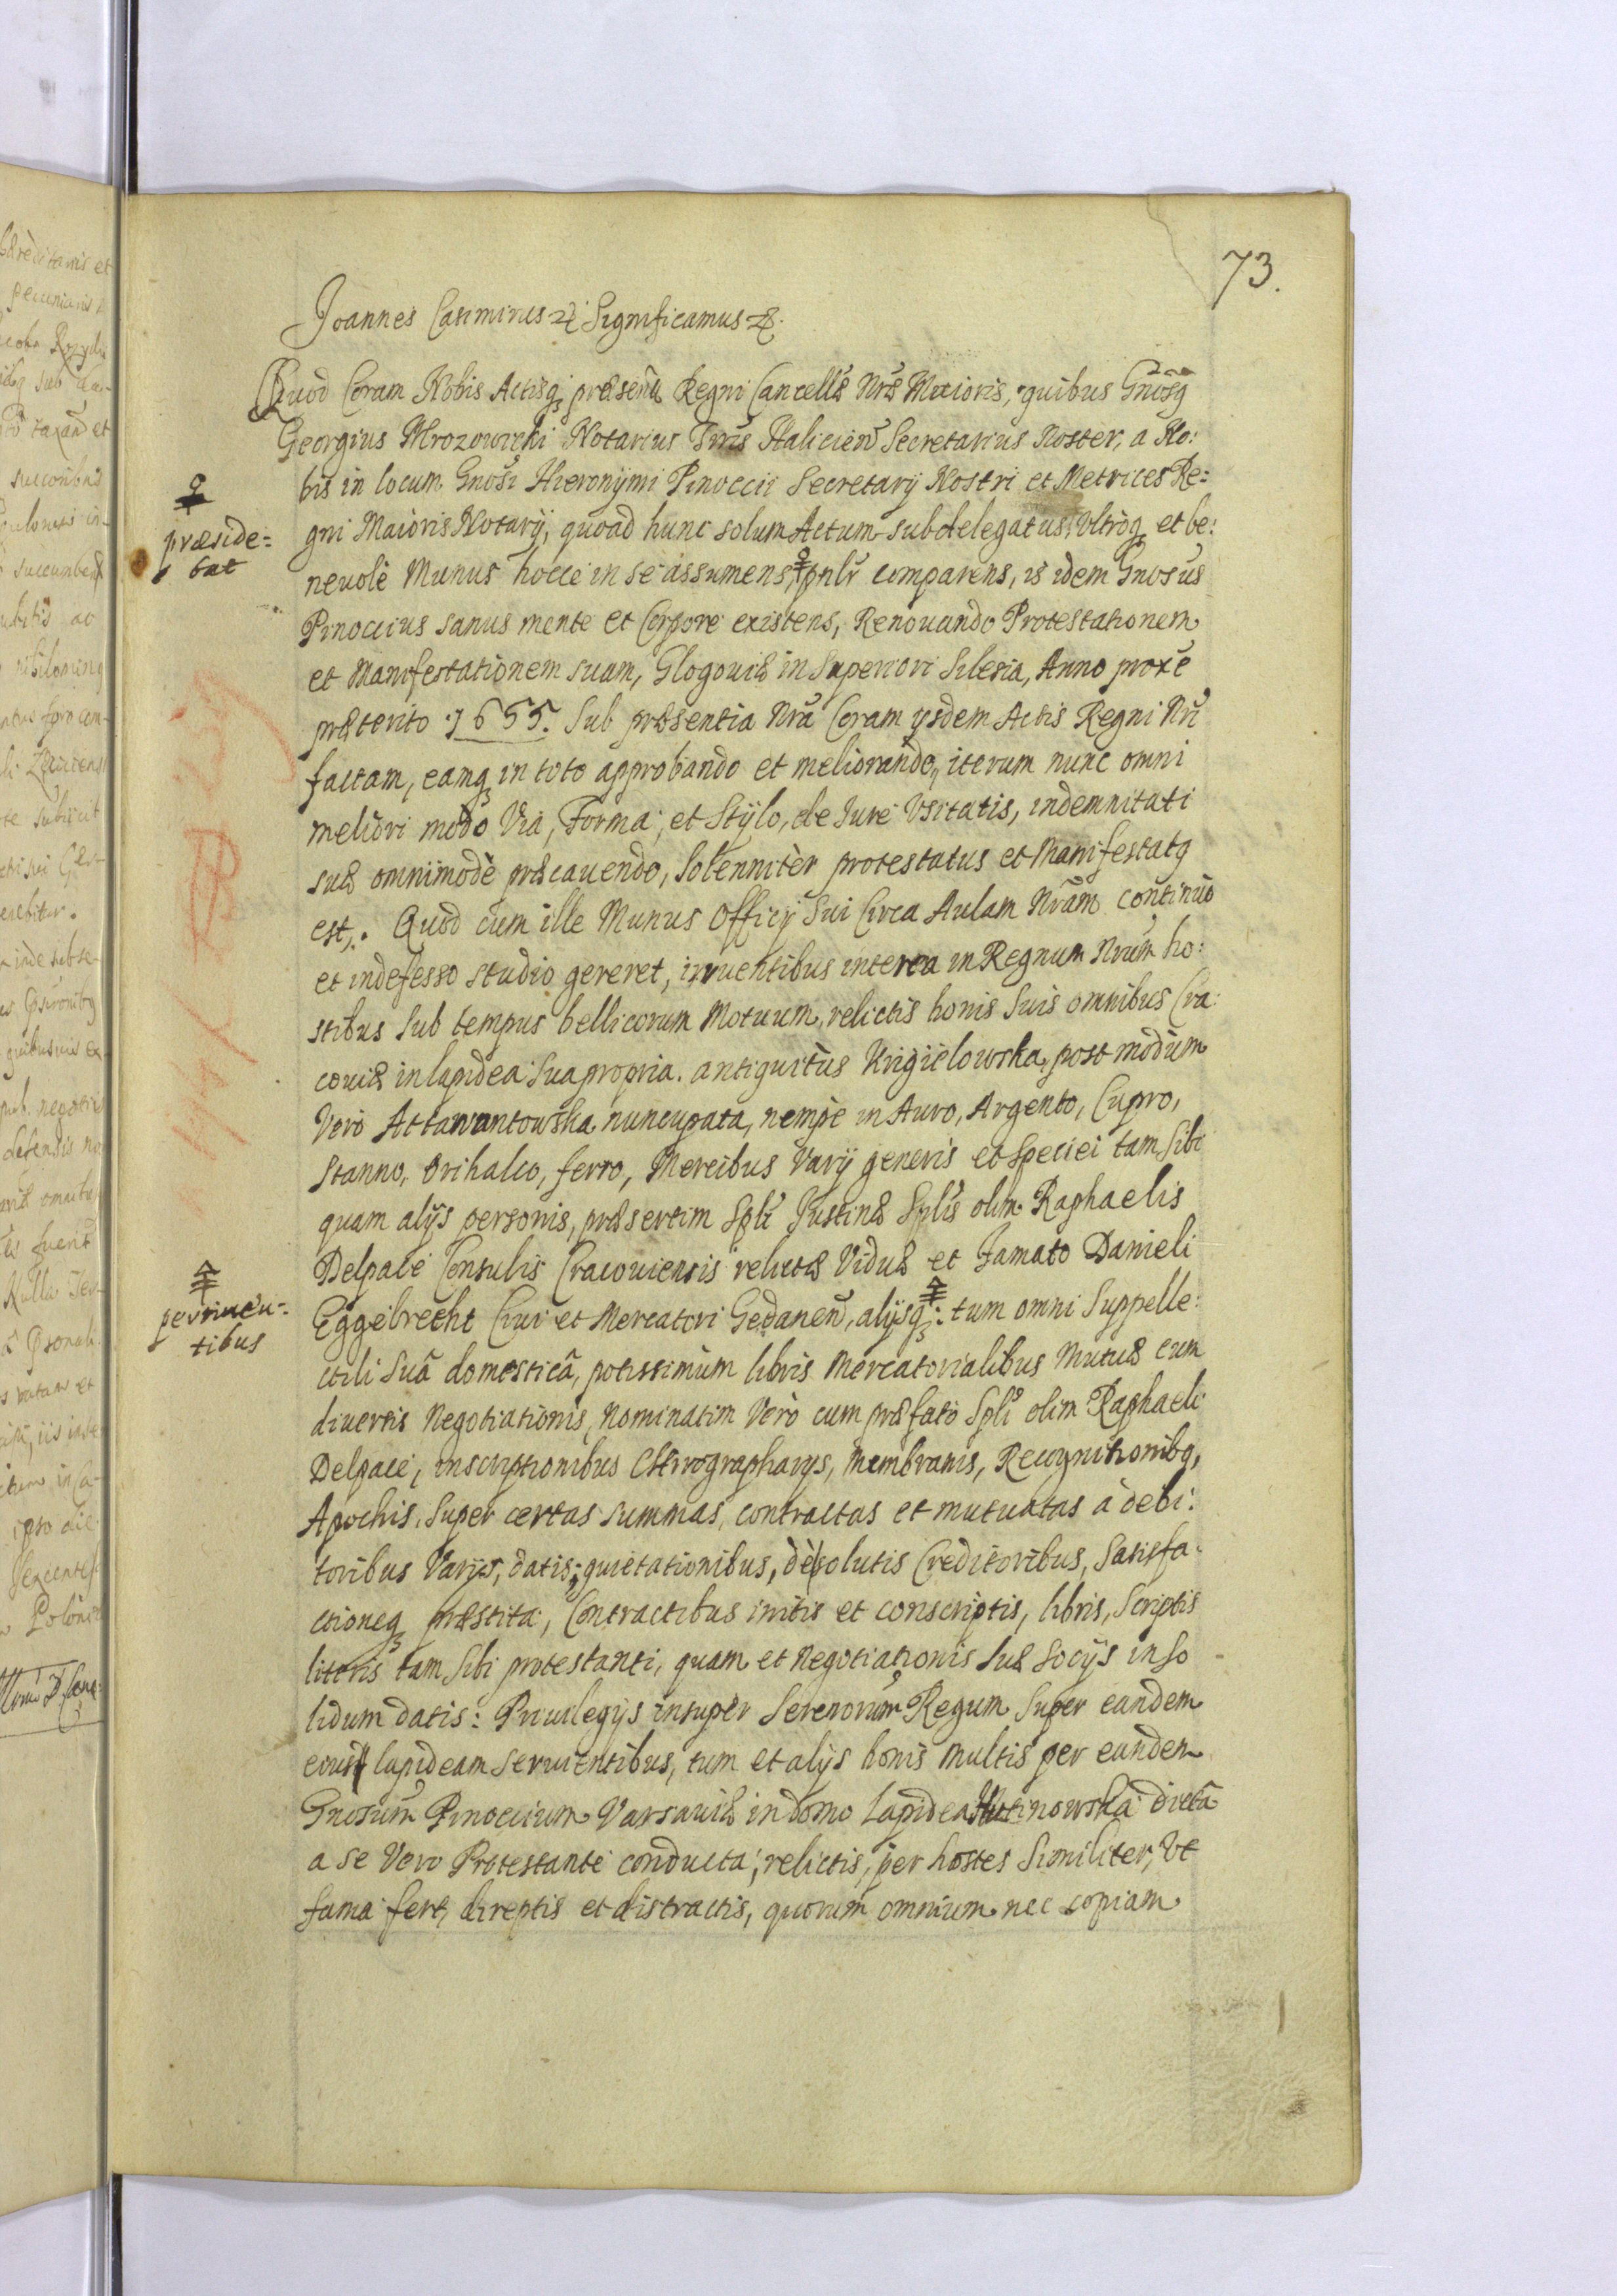 73.
Joannes Casimirus etc Significamus etc.
Quod Coram Nobis Actisq præsen͂ Regni Cancellæ Nr͂æ Maioris, quibus Gnosq
Georgius Mrozowicki Notarius Tr͂ris Halicien͂ Secretarius Noster, a No:
bis in locum Gnosi Hieronymi Pinoccii Secretarÿ Nostri et Metrices Re:
gni Maioris Notarÿ, quoad hunc solum Actum subdelegatus, Vltroq et be:
præside:
bat
neuolè Munus hocce in se assumens, pnlr comparens, is idem Gnosus
Pinoccius sanus mente et Corpore existens, Renouando Protestationem
et Manifestationem suam, Glogouiæ in Superiori Silesia, Anno proxe
præterito 1655. Sub præsentia Nr͂a Coram ÿsdem Actis Regni Nr͂i
factam, eamq in toto approbando et meliorando, iterum nunc omni
meliori modo Via, Forma, et Stÿlo, de Jure Vsitatis, indemnitati
suæ omnimodè præcauendo, Solennitèr protestatus et Manifestatq
est,. Quod cum ille Munus Officÿ Sui Circa Aulam Nr͂am continuò
et indefesso studio gereret, irruentibus interea in Regnum Nr͂um ho:
stibus Sub tempus bellicorum Motuum, relictis bonis Suis omnibus Cra:
couiæ in lapidea Sua propria. antiquitùs Krigielowska, post modùm
Verò Attawantowska nuncupata, nempe in Auro, Argento, Cupro,
Stanno, Orihalco, ferro, Mercibus Varÿ generis et Speciei tam Sibi
quam alÿs personis, præsertim Spli Justinæ Splis olim Raphaelis
Delpace Consulis Cracouiensis relictæ Viduæ et Famato Danieli
Eggebrecht Ciui et Mercatori Gedanen͂, alÿsq: tum omni Suppelle:
pertinen:
tibus
ctili Suâ domesticâ, potissimùm libris Mercatorialibus Mutuæ cum
diuersis Negotiationis, Nominatim Verò cum præfato Spli olim Raphaeli
Delpace, inscriptionibus Chirographarÿs, Membranis, Recognitionibq,
Apochis, Super certas summas, contractas et mutuatas à debi:
toribus Varÿs, datis; quietationibus, de solutis Creditoribus, Satisfa:
ctioneq præstita, Contractibus initis et conscriptis, libris, Scriptis
litteris tam Sibi protestanti, quam et Negotiationis Suæ Socÿs in So
lidum datis: Priuilegÿs insuper Serenorum Regum Super eandem
eius lapideam Seruientibus, tum et alÿs bonis Multis per eundem
Gnosum Pinoccium Varsauiæ in domo Lapidea dictâ
a se Vero Protestante conducta, relictis, per hostes Similiter, Vt
fama fert, direptis et distractis, quorum omnium nec copiam